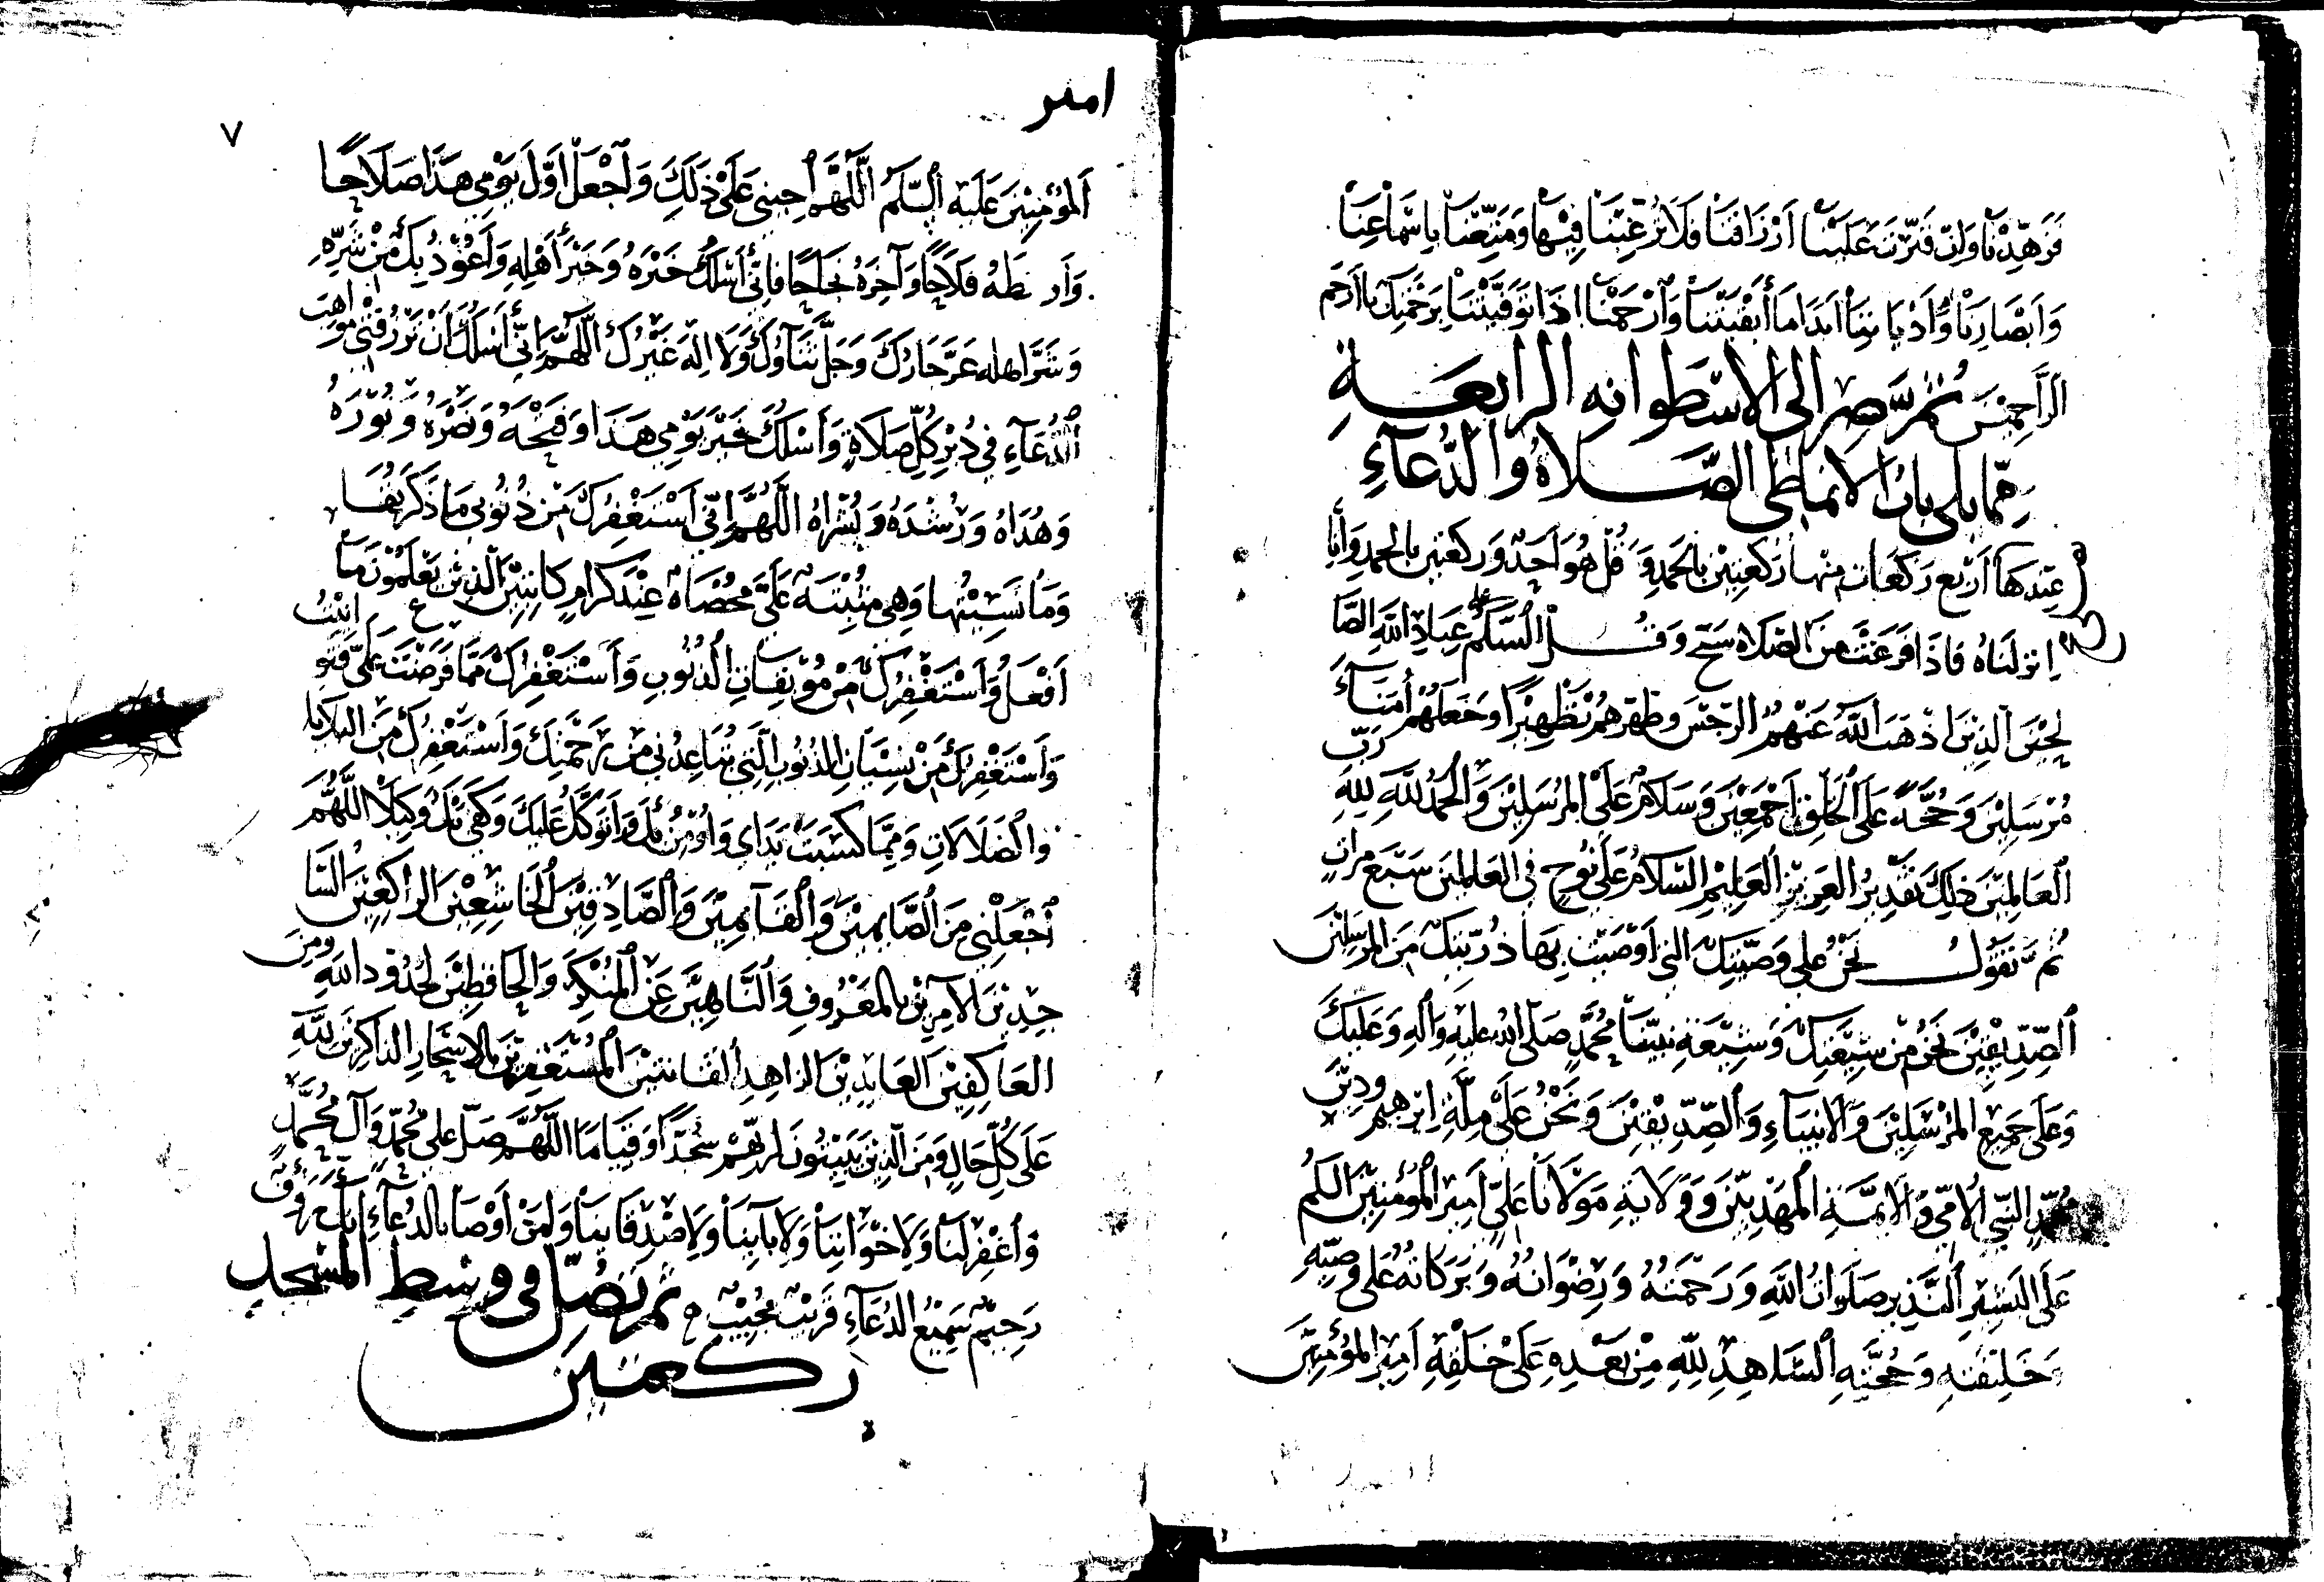 فَزَهِّدْنَا وَاِنْ قَتَّرْتَ عَلَيْنَا اَرْزَاقَنَا فَلَا تُرَغِّبْنَا فِيْهَا وَمَتِّعْنَا بِاَسْمَاعِنَا
وَاَبْصَارِنَا وَاَدْيَانِنَا اَبَدًا مَا أَبْقَيْتَنَا وَاَرْحَمْنَا اِذَا تَوَفَّيْتَنَا بِرَحْمَتِكَ يَا اَرْحَمَ
الرَّاحِمِينَ ثُمَّ صِر الى الاسطوانه الرابعة
مِمّا يلى باب الانماطى الصّلاة والدُّعآءِ
عِنْدَهَا اَرْبَع رَكَعَات مِنْها رَكْعَتِيْنِ بِالحَمْدِ وَقُلْ هُوَ اَحَدٌ وَرَكْعَتِينِ بِالحمدِ وَأنا
انزَلنَاهُ فَاذَا فَرَغْتَ مِنَ الصّلاهِ سَبِّح وَقُل السَّلَمُ على عِبَادِ اللهِ الصَّا
لِحِيْنَ الَّذِينَ اَذْهَبَ اللَّهُ عَنْهُمُ الرِّجْسَ وَطَهَّرَهُمْ تَطْهِيْرًا وَجَعَلَهُمْ أُمَنَاءَ
مُرْسَلِيْنَ وَحُجَّةً عَلَى الْخَلْقِ اَجْمَعِيْنَ وَسَلَامٌ عَلَى المُرْسَلِيْنَ وَالْحَمْدُ لِلَّهِ رَبِّ
العَالَمِيْنَ ذَلِكَ تَقْدِيْرُ العَزِيْزِ الْعَلِيْمِ السَّلَامُ عَلَى نُوْحٍ فِى العَالَمِيْنَ سَبْعَ مراتٍ
ثُمَّ تَقُوْلُ نَحْنُ عَلى وَصِيَّتِكَ التى اَوْصَيْتَ بِهَا ذُرِّيَّتِكَ مِنَ المُرسَلِيْنَ
الصِّدِّيْقِيْنَ نَحْنُ مِنْ شِيْعَتِكَ وَشِيْعَةِ نَبِيِّنَا مُحَمَّدٍ صَلَّى الله عَلَيْهِ وَآلِهِ وَعَلَيْكَ
وَعَلَى جَمِيْعِ المُرْسَلِيْنَ وَالاَنْبِيَآءِ وَالصِّدِّيْقِيْنَ وَنَحْنُ عَلَى مِلَّةِ اِبْرهِيمَ وَدِيْنَ
مُحَمَّدٍ النَّبِىِّ الْاُمِّىِّ وَالْاَئِمَّةِ الْمَهْدِيِّيْنَ وَوَلَايَةِ مَوْلَانَا عَلِىٍّ اَمِيْرِ الْمُؤْمِنِيْنَ السَّلَمُ
عَلَى البَشِيْرِ النَّذِيرِ صَلَوَاتُ اللَّهِ وَرَحْمَتُهُ وَرِضْوَانُهُ وَبَرَكَاتُهُ عَلَى وَصِيِّهِ
وَخَلِيْفَتِهِ وَحُجَّتِهِ الشَّاهِدِ لِلَّهِ مِنْ بَعْدِهِ عَلَى خَلْقِهِ اَمِيْرِ المُؤْمِنِيْنَ
امير
٧
اَلمُؤْمِنِيْنَ عَلَيْهِ السَّلَمُ اَللَّهُمَّ اَحِينى عَلَى ذَلِكَ وَاَجْعَلْ اَوَّلَ يَوْمِى هَذَا صَلَاحًا
وَاَوسَطَهُ فَلَاحًا وَآخِرَهُ نَجَاحًا فَاِنِّى أَسْلُكَ خَيْرَهُ وَخَيْرَ أَهْلِهِ وَاَعُوْذُ بِكَ مِنْ شَرِّهِ
وَشَرِّ اَهله عَزَّ جَارُكَ وَجَلَّ ثَنَآؤُكَ وَلَا اِلَهَ غَيْرُكَ اَللَّهُمَّ اِنِّى أَسْلُكَ اَنْ تَرْزُقَنِى مَوَاهِبَ
الدُّعَآءِ فِى دُبْرِ كُلِّ صَلَاةٍ وَأَسْلُكَ خَيْرَ يَوْمِى هَذَا وَفَتْحَهُ وَنَصْرَهُ وَنُوْرَهُ
وَهُدَاهُ وَرُشْدَهُ وَبُشْرَاهُ اللَّهُمَّ اِنِّى اَسْتَغْفِرُكَ مِنْ ذُنُوْبِى مَا ذَكَرْتُهَا
وَمَا نَسِيْتُهَا وَهِىَ مُثْبَتَهٌ عَلَىَّ مُحْصَاةٌ عِنْدَ كِرَامٍ كَاتِبِيْنَ الَّذِيْنَ يَعْلَمُوْنَ مَا
اَفْعَلُ وَاَسْتَغْفِرُكَ مِنْ مُوْبِقَاتِ الذُّنُوْبِ وَاَسْتَغْفِرُكَ مِمَّا فَرَضْتَ عَلَىَّ
وَاَسْتَغْفِرُكَ مِنْ الذُّنُوبِ الَّتِى تُبَاعِدُنِى مِنْ رَحْمَتِكَ وَاَسْتَغْفِرُكَ مِنَ البَلَايَا
وَالضَّلَالَاتِ وَمِمَّا كَسَبَتْ يَدَاىَ وَاُوْمِنُ بِكَ وَاَتَوَكَّلُ عَلَيْكَ وَكَفَى بِكَ وَكِيْلًا اللَّهُمَّ
اَجْعَلْنِى مِنَ الصَّايِمِيْنَ وَالْقَآيِمِيْنَ وَالصَّادِقِيْنَ الْخَاشِعِيْنَ الرَّاكِعِيْنَ السَّا
جِدِيْنَ الآمِرِيْنَ بِالمَعْرُوفِ وَالنَّاهِيْنَ عَنِ الْمُنْكَرِ وَالحَافِظِيْنَ لِحُدُوْدِ اللَّهِ وَمِنَ
العَاكِفِيْنَ العَابِدِيْنَ الزاهِدِ القَانِتِيْنَ الْمُسْتَغْفِرِيْنَ بِالاسْحَارِ الذاكِرِيْنَ لِلَّهِ
عَلَى كُلِّ حَالٍ وَمِنَ الَّذِيْنَ يَبِيْتُوْنَ لِرَبِّهِمْ سُجَّدًا وَقِيَامًا اللَّهُمَّ صَلِّ عَلى مُحَمَّدٍ وَآلِ مُحَمَّدٍ
وَاغْفِرْ لَنَا وَلِاِخْوَانِنَا وَلِآبَائِنَا وَلِاَصْدِقَائِنَا وَلِمَنْ اَوْصَانا بِالدُّعَآءِ اِنَّكَ رَؤُفٌ
رَحِيْمٌ سَمِيْعُ الدُّعَآءِ قَرِيْبٌ مُجِيْبٌ ثم تصلّ فى وسط المسجد
ركعتين